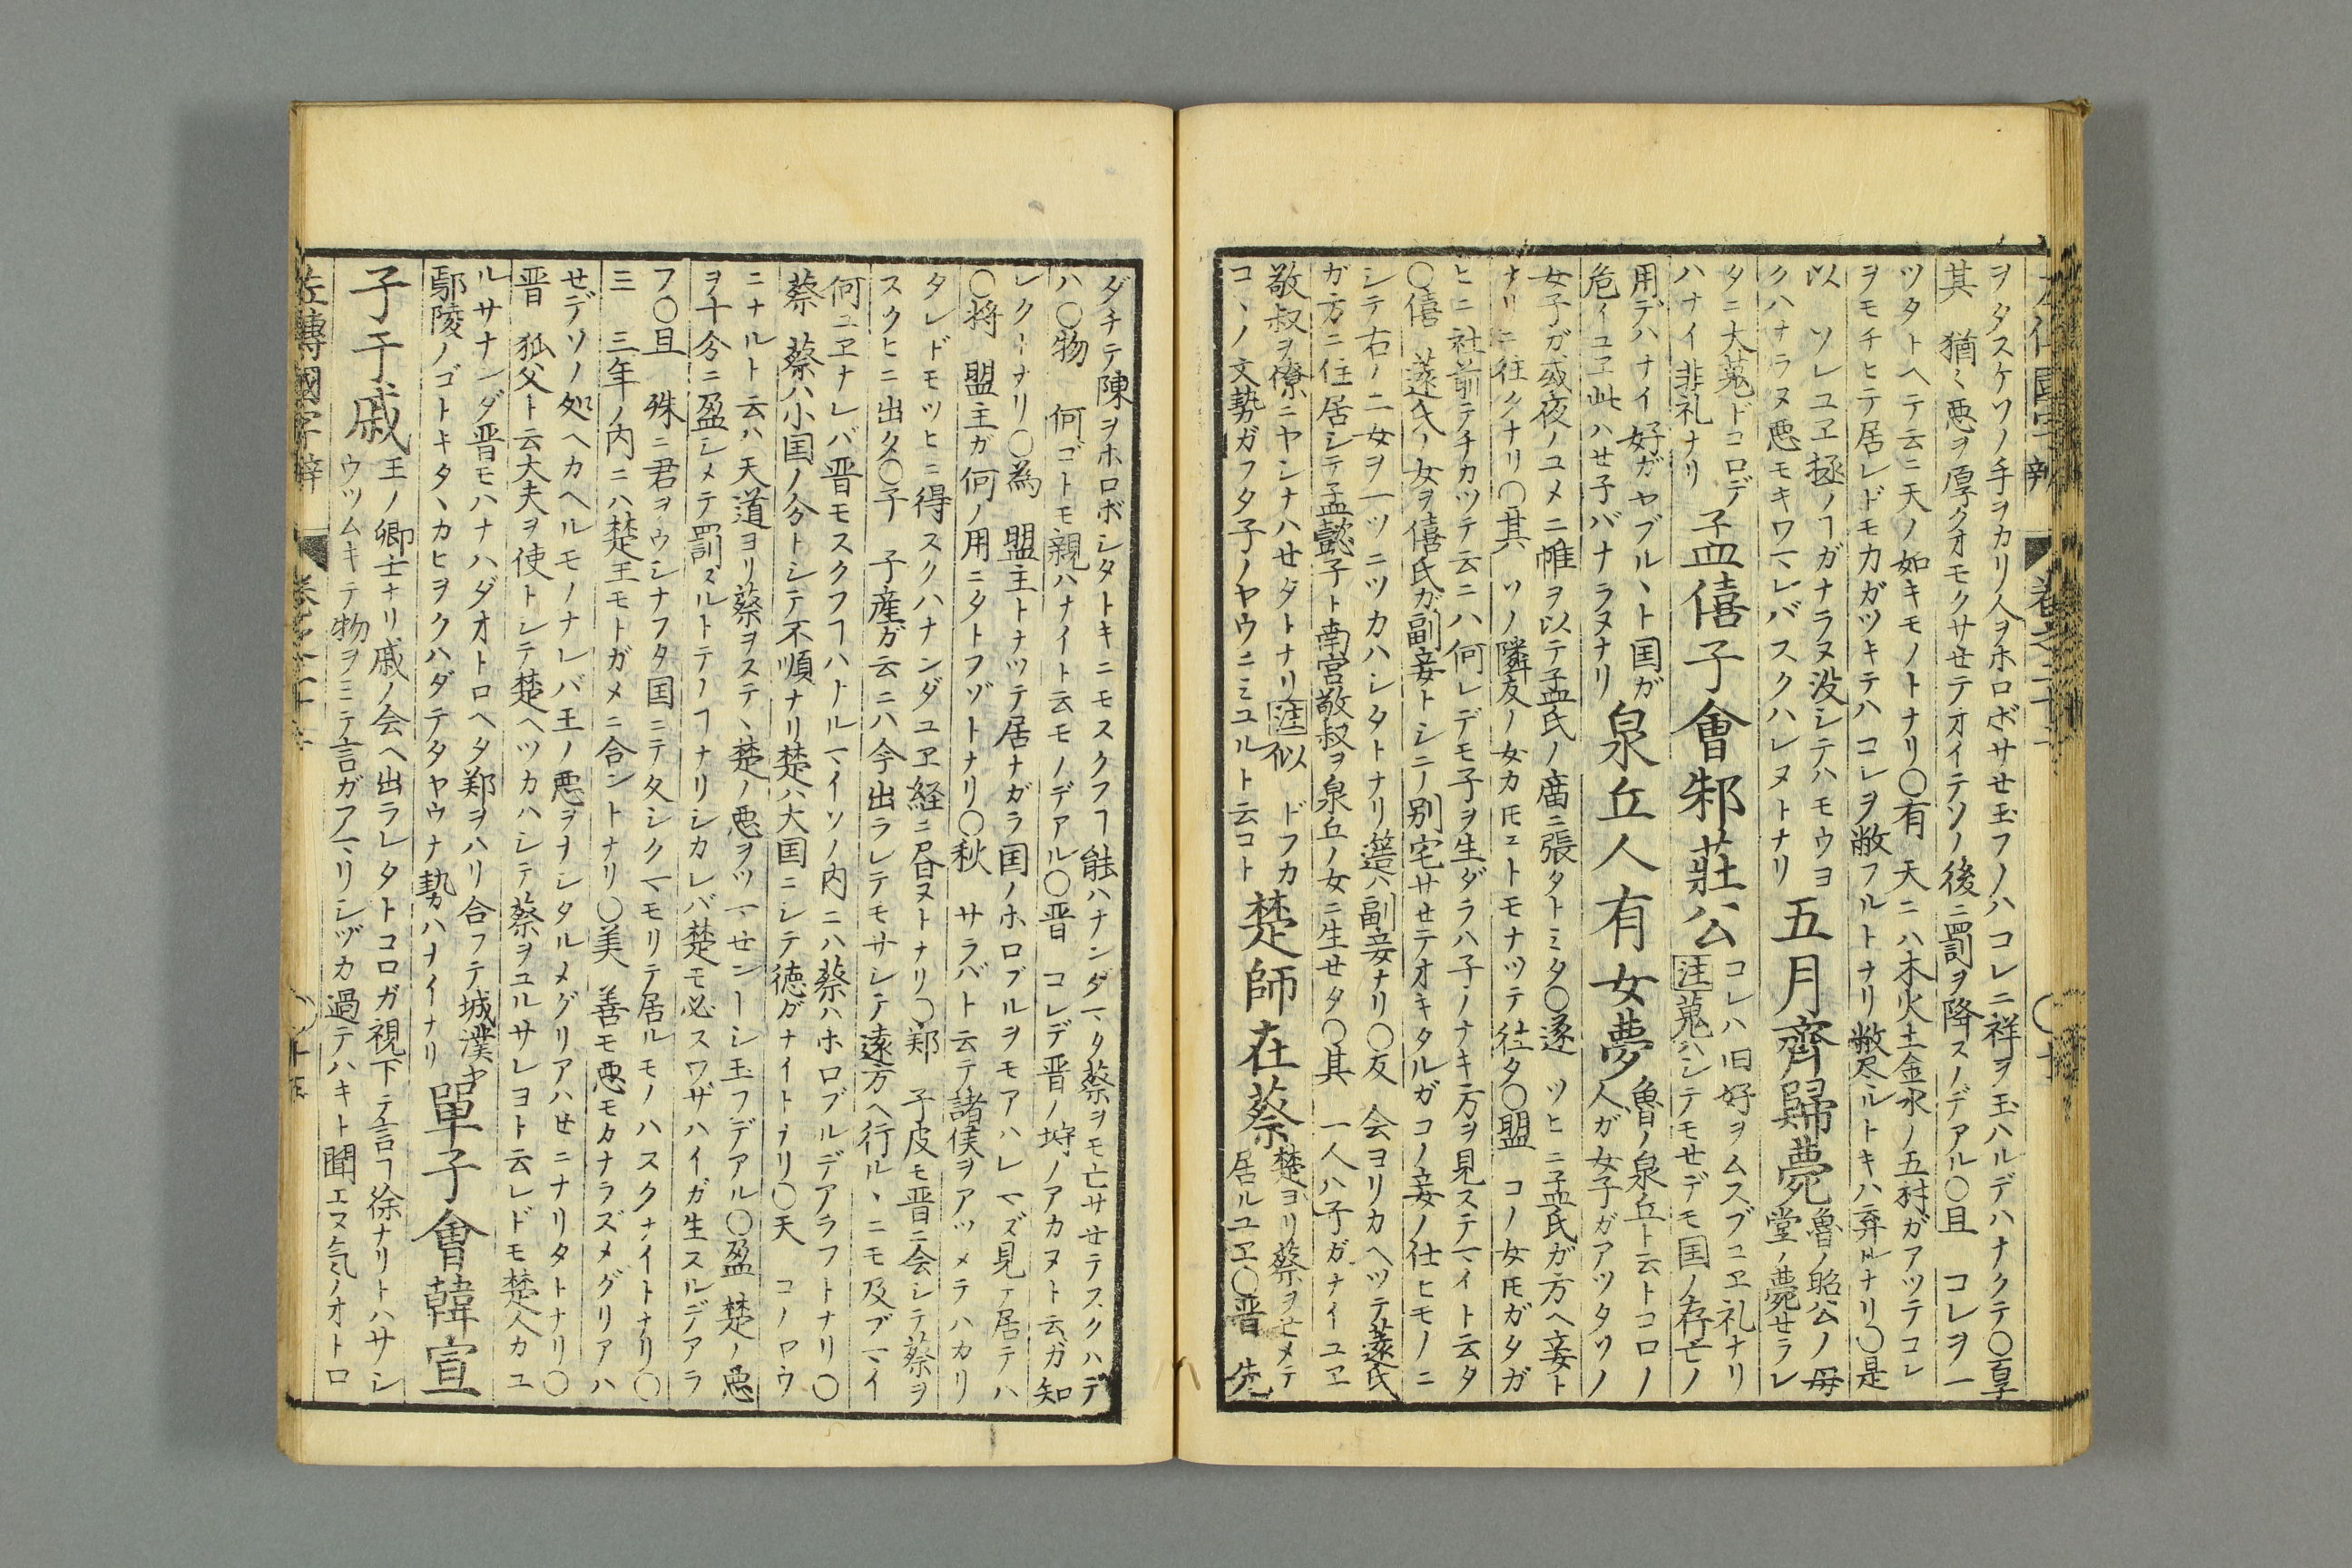 ヲタスケソノ手ヲカリ人ヲホロボサせ玉フノハコレニ祥ヲ玉ハルデハナクテ〇享
其 猶〻悪ヲ厚クオモクサせテオイテソノ後ニ罰ヲ降スノデアル〇且 コレヲ一
ツタトヘテ云ニ天ノ如キモノトナリ〇有 天ニハ木火土金水ノ五材ガアツテコレ
ヲモチヒテ居レドモ力ガツキテハコレヲ敝フルトナリ敝尽ルトキハ弃ルナリ〇是
以 ソレユヱ拯ノヿガナラヌ没シテハモウヨ
クハナラヌ悪モキワマレバスクハレヌトナリ
五月齊歸薨
魯ノ昭公ノ母
堂ノ薨せラレ
タニ大蒐ドコロデ
ハナイ非礼ナリ
孟僖子會邾莊公
コレハ旧好ヲムスブユヱ礼ナリ
注蒐ハシテモせデモ国ノ存亡ノ
用デハナイ好ガヤブルヽト国ガ
危イユヱ此ハせ子バナラヌナリ
泉丘人有女夢
魯ノ泉丘ト云トコロノ
人ガ女子ガアツタソノ
女子ガ或夜ノユメニ帷ヲ以テ孟氏ノ廟ニ張タトミタ〇遂 ツヒニ孟氏ガ方ヘ妾ト
ナリニ往クナリ〇其 ソノ隣友ノ女カ氏ヱトモナツテ往タ〇盟 コノ女氏ガタガ
ヒニ社前テチカツテ云ニハ何レデモ子ヲ生ダラハ子ノナキ方ヲ見ステマイト云タ
〇僖 薳氏ノ女ヲ僖氏ガ副妾トシニノ別宅サせテオキタルガコノ妾ノ仕ヒモノニ
シテ右ノ二女ヲ一ツニツカハシタトナリ簉ハ副妾ナリ〇反 会ヨリカヘツテ薳氏
ガ方ニ住居シテ孟懿子ト南宮敬叔ヲ泉丘ノ女ニ生せタ〇其 一人ハ子ガナイユヱ
敬叔ヲ僚ニヤシナハせタトナリ注似 ドフカ
コヽノ文勢ガフタ子ノヤウニミユルト云コト
楚師在蔡
楚ヨリ蔡ヲせメテ
居ルユヱ〇晋 先
ダチテ陳ヲホロボシタトキニモスクフヿ能ハナンダマタ蔡ヲモ亡サせテスクハデ
ハ〇物 何ゴトモ親ハナイト云モノデアル〇晋 コレデ晋ノ埒ノアカヌト云ガ知
レクーナリ〇為 盟主トナツテ居ナガラ国ノホロブルヲモアハレマズ見テ居テハ
〇将 盟主ガ何ノ用ニタトフゾトナリ〇秋 サラバト云テ諸侯ヲアツメテハカリ
タレドモツヒニ得スクハナンダユヱ経ニ昏ヌトナリ〇鄭 子皮モ晋ニ会シテ蔡ヲ
スクヒニ出タ〇子 子産ガ云ニハ今出ラレテモサシテ遠方ヘ行ルヽニモ及ブマイ
何ユヱナレバ晋モスクフヿハナルマイソノ内ニハ蔡ハホロブルデアラフトナリ〇
蔡 蔡ハ小国ノ分トシテ不順ナリ楚ハ大国ニシテ徳ガナイトナリ〇天 コノヤウ
ニナルト云ハ天道ヨリ蔡ヲステヽ楚ノ悪ヲツマせンーシ玉フデアル〇盈 楚ノ悪
ヲ十分ニ盈シメテ罰スルトテノヿナリシカレバ楚モ必スワザハイガ生スルデアラ
フ〇且 殊ニ君ヲウシナフタ国ニテ久シクマモリテ居ルモノハスクナイトナリ〇
三 三年ノ内ニハ楚王モトガメニ合ントナリ〇美 善モ悪モカナラズメグリアハ
せデソノ処ヘカヘルモノナレバ王ノ悪ヲナシタルメグリアハせニナリタトナリ〇
晋 狐父ト云大夫ヲ使トシテ楚ヘツカハシテ蔡ヲユルサレヨト云レドモ楚人カユ
ルサナンダ晋モハナハダオトロヘタ鄭ヲハリ合フテ城濮ヤ
鄢陵ノゴトキタヽカヒヲクハダテタヤウナ勢ハナイナリ
單子會韓宣
子于戚
王ノ卿士ナリ戚ノ会ヘ出ラレタトコロガ視下テ言フ徐ナリトハサシ
ウツムキテ物ヲミテ言ガアマリシヅカ過テハキト聞エヌ気ノオトロ
左傳國字辯